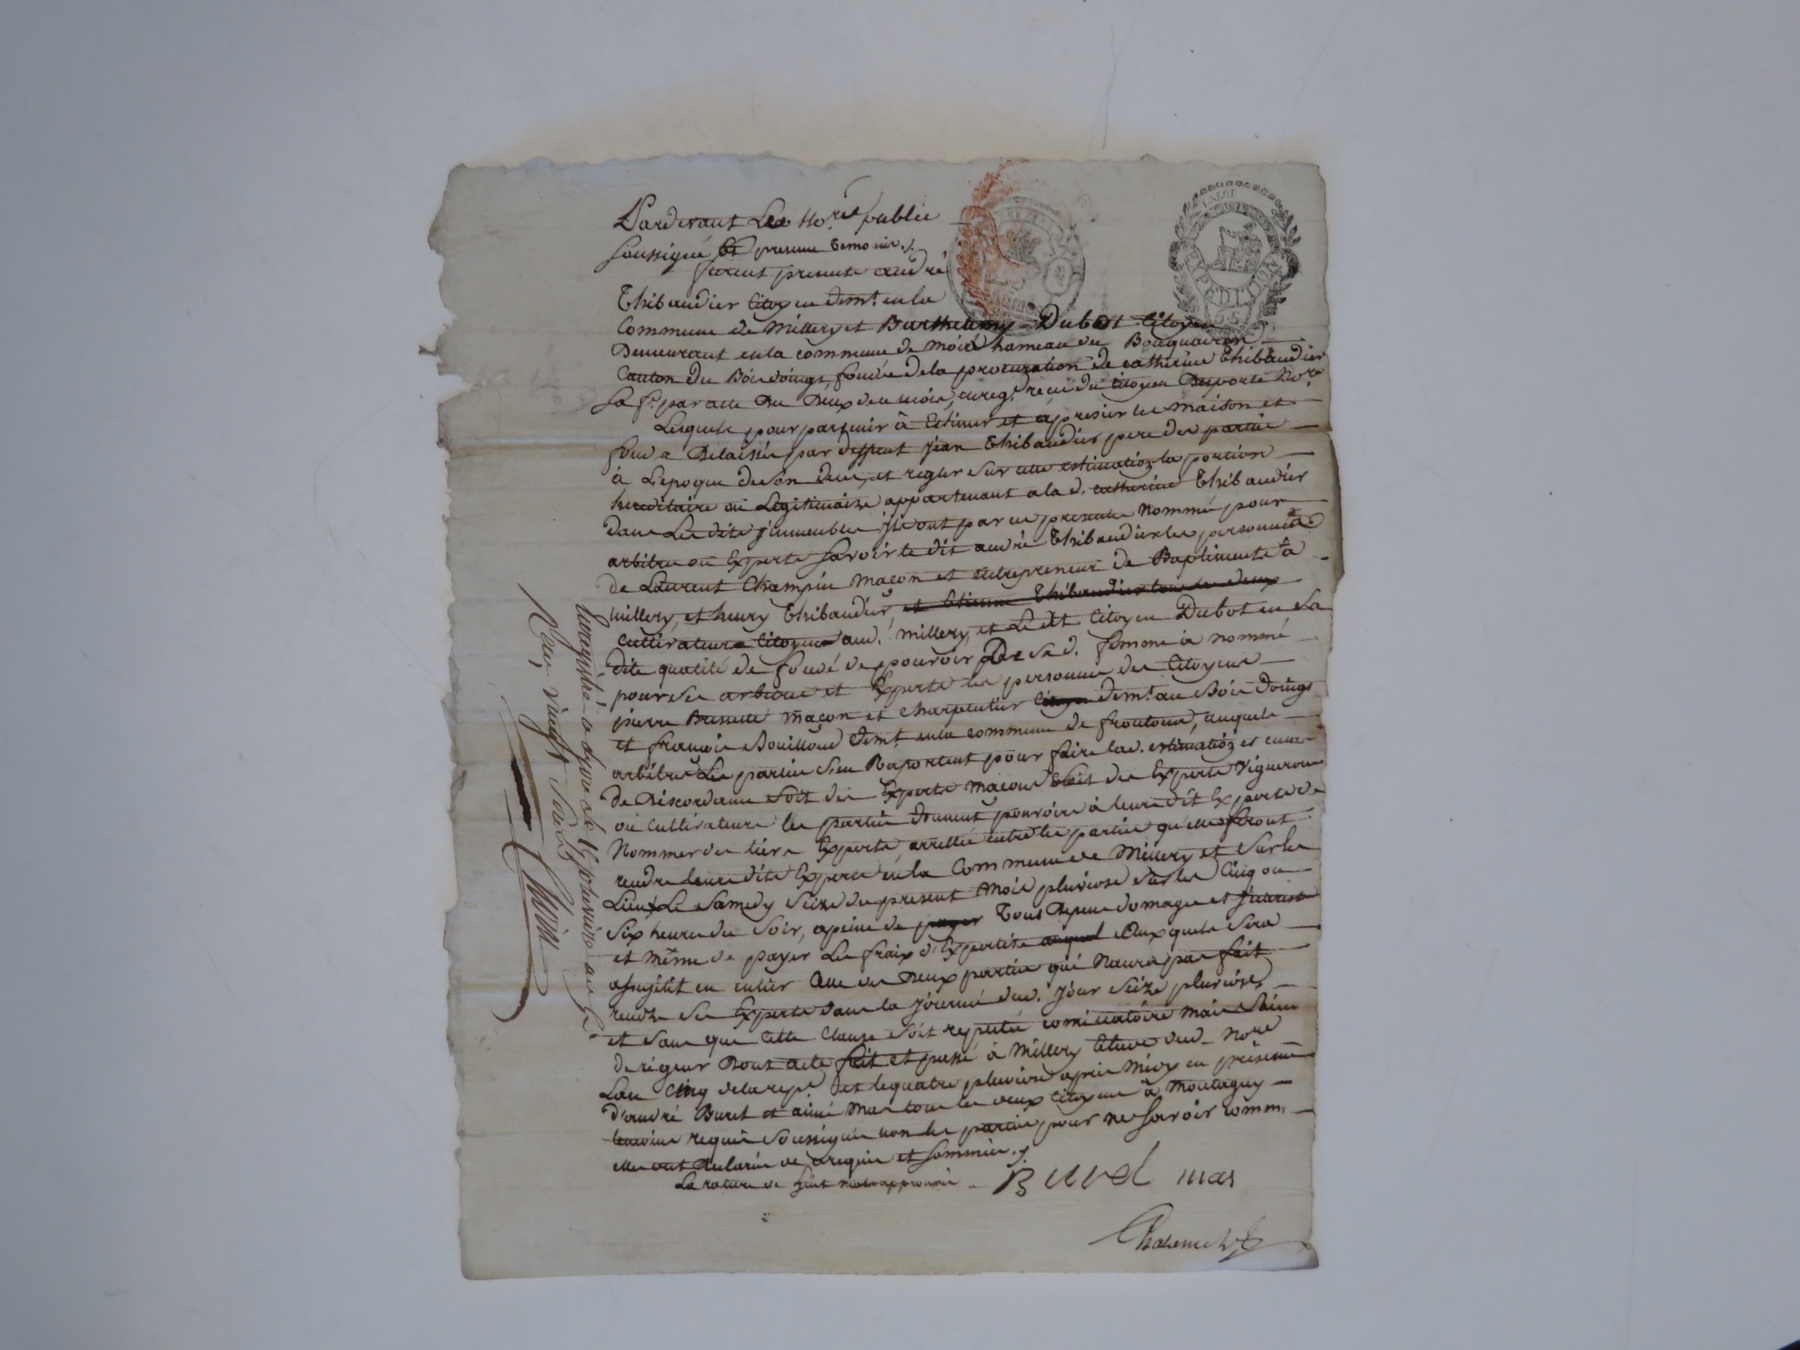 Pardevant Les No.res public
soussigné et presence temoins./.
furent presents andré
Thibaudier Citoyen demt. en la
Commune de Millery et Barthelemy Dubost Citoyen
Demeurant en la commune de moiré hameau du
Canton du Bois doingt, fondé de la procuration de catherine Thibaudier
Sa fe. par acte du deux de ce mois, enreg. recu du Citoyen Duporte No.re
Lesquels pour parvenir à Estimer et apresier les maison et
fond a Delaissés par deffunt jean Thibaudier pere des parties
à L'epoque de son deces, et regler sur cette estimation la portion
hereditaire ou Legitimaire appartenant a la d. catherine Thibaudier
dans Les dits jmmeubles jls ont par ces presentes Nommé pour
arbitres ou Experts savoir le dit andré Thibaudier les personnes
de Laurent Champin maçon et entrepreneur de Baptiments à
millery, et henry Thibaudier, et Etienne Thibaudier tous les deux
Cultivateurs Citoyens aud. millery, et Le dt Citoyen Dubost en sa
dite qualité de fondé de pouvoir De sa d. femme a nommé
pour ses arbitres et Experts les personnes des Citoyens
pierre maçon et charpentier Citoyen demt. au Bois doingt
et françois Bouilloud demt. en la commune de frontenas, auquels
arbitres Les parties s'en Raportent pour faire lad. estimation et en cas
de Discordance soit des Experts maçons soit des Experts Vignerons
ou Cultivateurs les parties donnent pouvoirs à leurs dit Experts de
Nommer des tiers Experts, arrettée entre les parties qu'elles feront
rendre leurs dits Experts en la Commune de Millery et sur les
Lieux Le samedy seize du present mois pluviose sur les Cinq ou
six heures du soir, a peine de payer Tous Depens domages et jnterets
et même de payer Les fraix d'Expertise auquel auxquels sera
assujétit en entier celle des deux parties qui Naura pas fait
rendre ses Experts dans la journée dud. jour seize pluviose,
et sans que Cette Clause soit reputée cominatoire mais bien
de rigeur Dont acte fait et passé à Millery Etude dud. Nore
L'an Cinq de la rep.e et le quatre pluviose apres midy en présence
d'andré Buret et aimé Mas tous les deux Citoyens à Montagny
temoins requis soussignés non les parties pour ne savoir comme
elles ont Declarés de ce requis et sommés ./.
La rature de huit mots approuvée
Buret mas
Enregistré à le 15 pluviose an 5e
Recu vingt sous